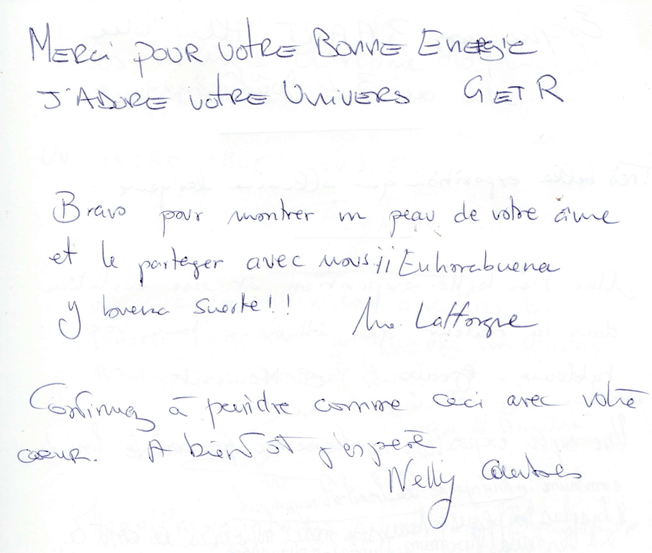 MERCI POUR VOTRE BONNE ENERGIE
J'ADORE VOTRE UNIVERS G ET R
Bravo pour montrer un peau de votre âme
et le partager avec nous ¡¡ Enhorabuena
y buena suerte!!
Continuez à peindre comme ceci avec votre
coeur. A bientôt j'espère
Nelly